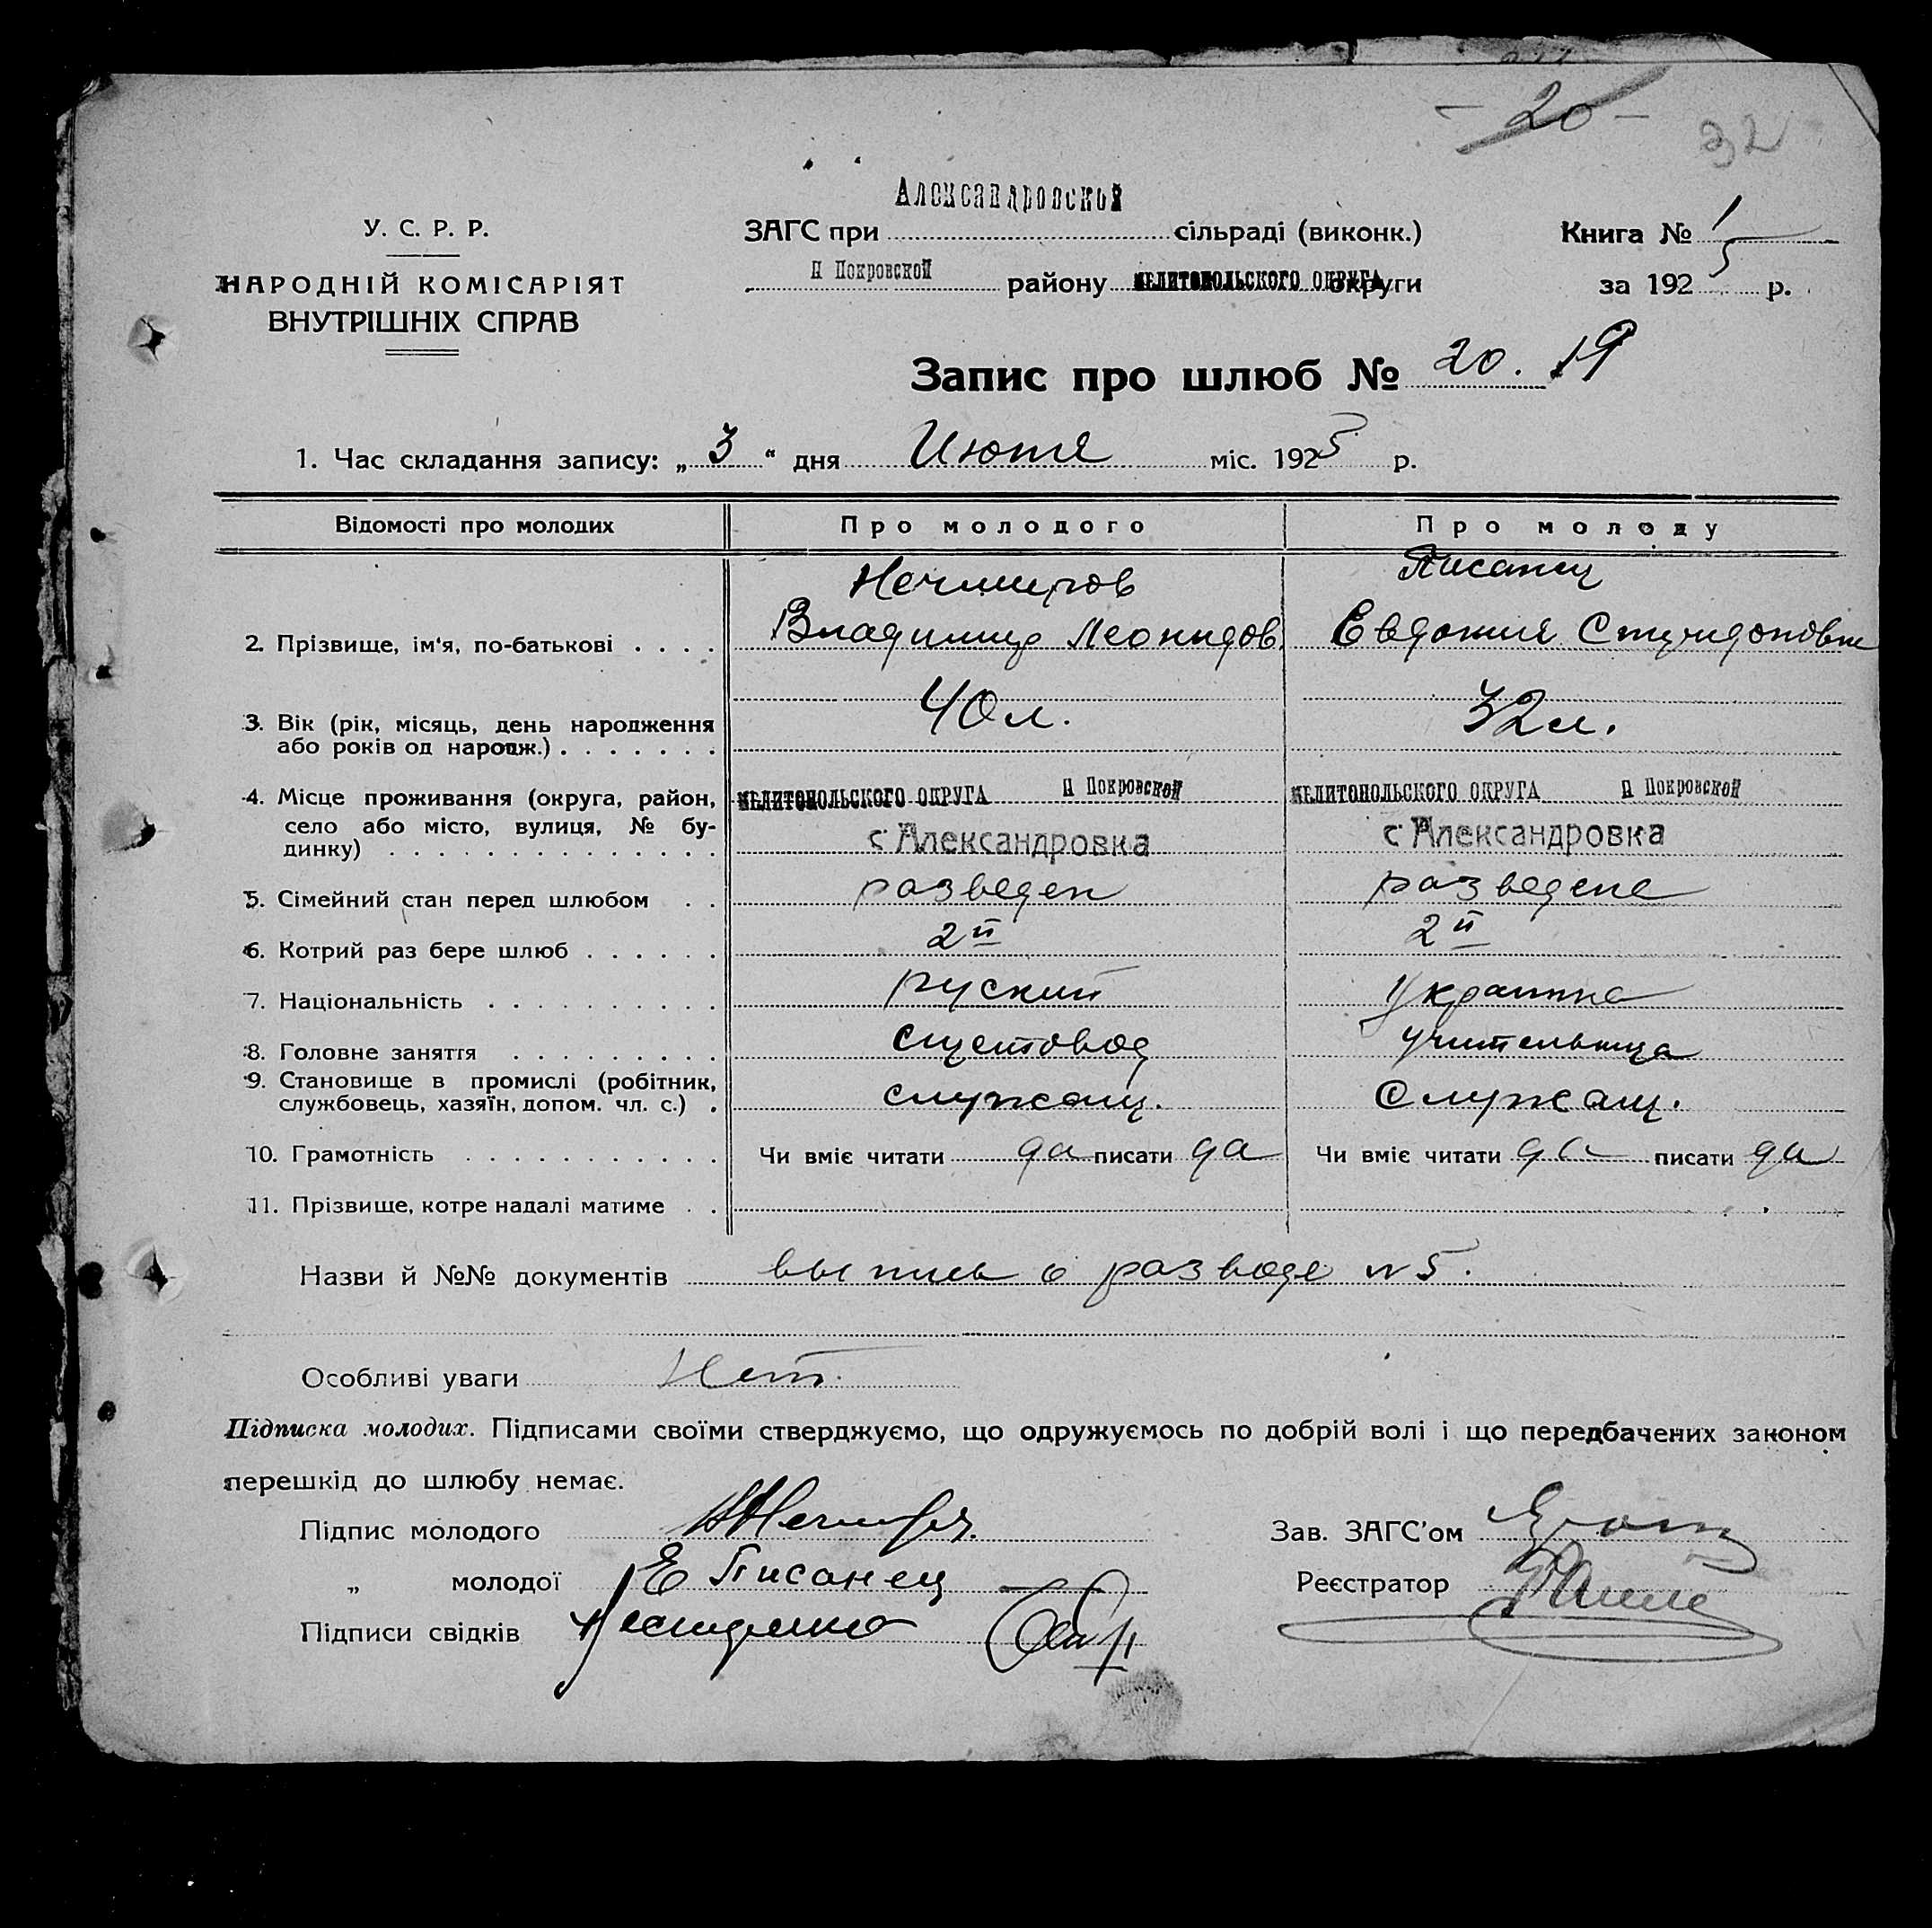 - 20 -
32
Александровской
У. С. Р. Р.
ЗАГС при сільраді (виконк.)
Книга № 1
НАРОДНІЙ КОМІСАРІЯТ
П Покровской району МЕЛИТОПОЛЬСКОГО ОКРУГА округи
за 1925 р.
ВНУТРІШНІХ СПРАВ
Запис про шлюб № 20. 19
1. Час складання запису: „ 3 “ дня міс. 1925 р.
Відомості про молодих Про молодого Про молоду
Писанец
2. Прізвище, ім‘я, по-батькові . . . . Владимир Леонидов. Евдокия
3. Вік (рік, місяць, день народження 40 л. 32 л.
або років од народж.) . . . . . . .
4. Місце проживання (округа, район, МЕЛИТОПОЛЬСКОГО ОКРУГА П Покровской МЕЛИТОПОЛЬСКОГО ОКРУГА П Покровской
село або місто, вулиця, № бу- с Александровка с Александровка
динку) . . . . . . . . . . . . . .
5. Сімейний стан перед шлюбом . . разведен разведена
6. Котрий раз бере шлюб . . . . . . 2й 2й
7. Національність . . . . . . . . . . руский
8. Головне заняття . . . . . . . . . счетовод учительница
9. Становище в промислі (робітник, служащ. Служащ.
службовець, хазяїн, допом. чл. с.) .
10. Грамотність . . . . . . . . . . . Чи вміє читати да писати да Чи вміє читати да писати да
11. Прізвище, котре надалі матиме . .
Назви й №№ документів выпись о разводе № 5.
Особливі уваги Нет.
Підписка молодих. Підписами своїми стверджуємо, що одружуємось по добрій волі і що передбачених законом
перешкід до шлюбу немає.
Підпис молодого
Зав. ЗАГС’ом
„ молодої Е Писанец
Реєстратор
Підписи свідків